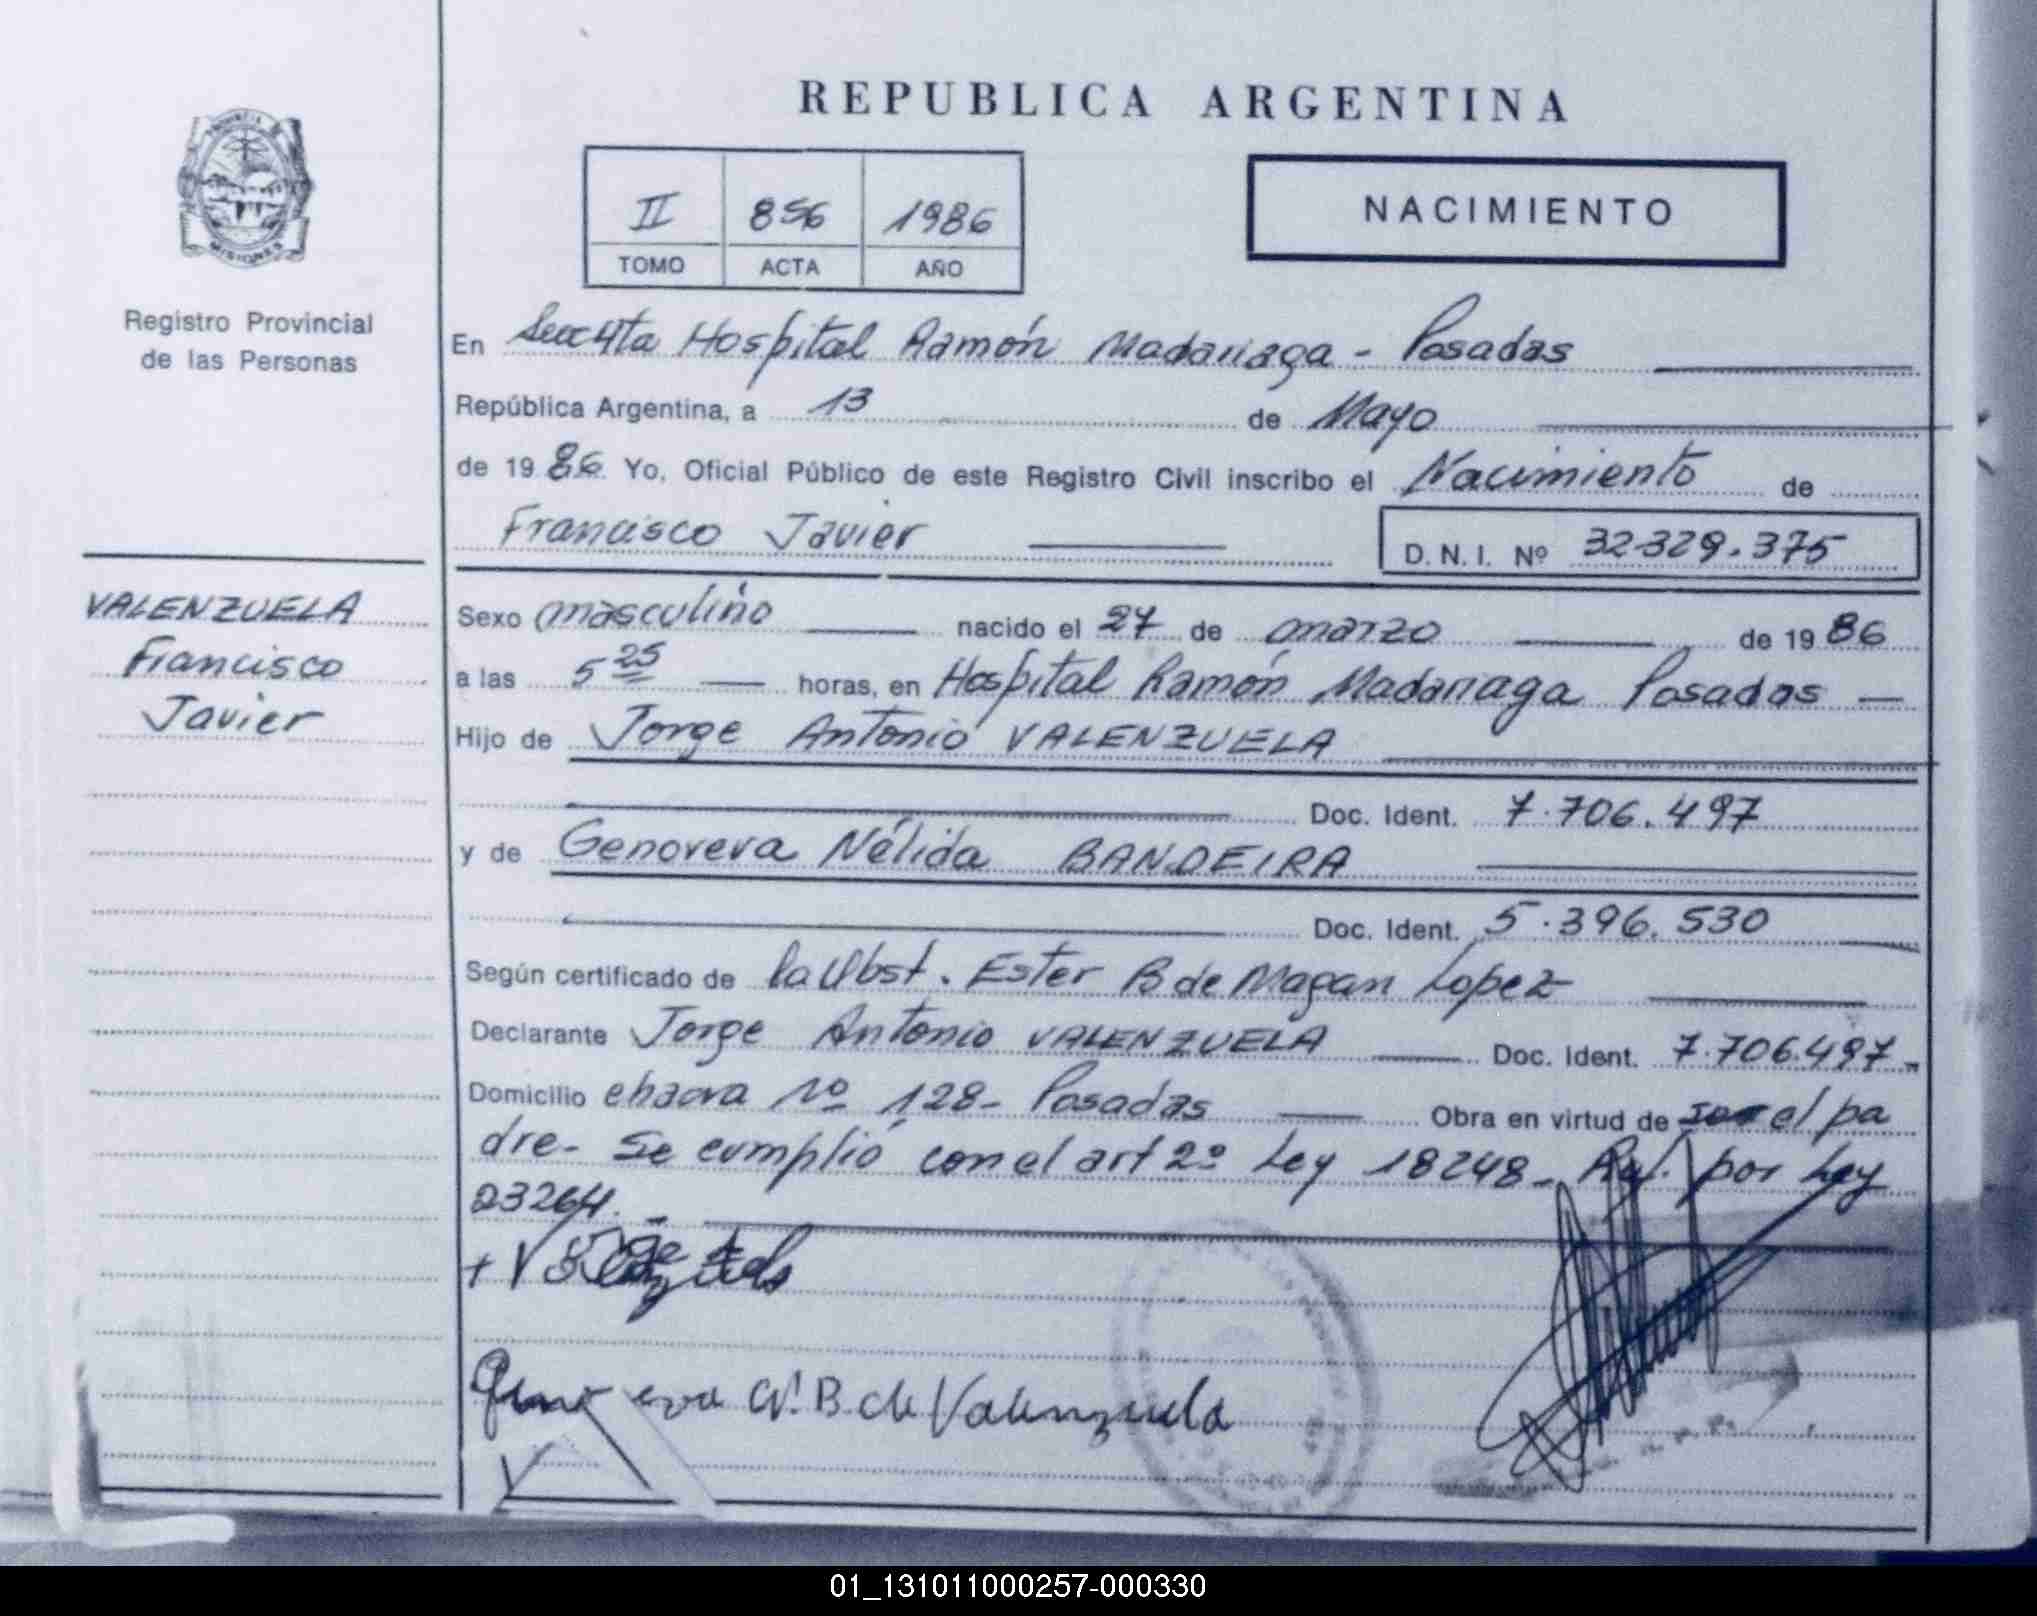 REPUBLICA ARGENTINA
PROVINCIA DE
MISIONES
Registro Provincial
de las Personas
II 856 1986
TOMO ACTA AÑO
NACIMIENTO
En Secc 4ta Hospital Ramón Madariaga - Posadas
República Argentina, a 13 de Mayo
de 1986 Yo, Oficial Público de este Registro Civil inscribo el Nacimiento de
Francisco Javier D. N. I. Nº 32.329.375
VALENZUELA
Francisco
Javier
Sexo masculino nacido el 27 de marzo de 1986
a las 5 25 horas, en Hospital Ramón Madariaga Posadas
Hijo de Jorge Antonio VALENZUELA
Doc. Ident. 7.706.497
y de Genoveva Nélida BANDEIRA
Doc. Ident. 5.396.530
Según certificado de la Obst. Ester B de Magan Lopez
Declarante Jorge Antonio VALENZUELA Doc. Ident. 7.706.497
Domicilio chacra Nº 128 - Posadas Obra en virtud de el pa
dre - Se cumplió con el art 2º Ley 18248 - por Ley
23264. -
Genoveva N. B. de Valenzuela
01_131011000257-000330